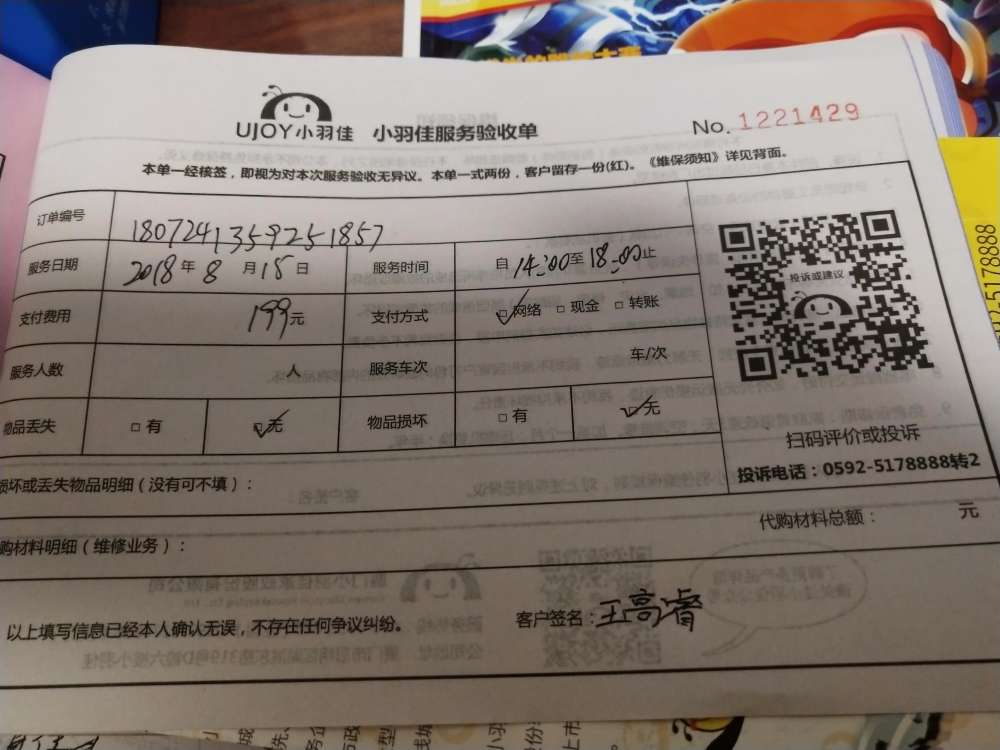 UJOY小羽佳 小羽佳服务验收单 No. 1221429
本单一经核签，即视为对本次服务验收无异议。本单一式两份，客户留存一份(红)。《维保须知》详见背面。
订单编号 1807241359251857
服务日期 2018 年 8 月 15 日 服务时间 自 14:00 至 18:00 止
支付费用 199 元 支付方式 ☑ 网络 □ 现金 □ 转账
服务人数 人 服务车次 车/次
物品丢失 □ 有 ☑ 无 物品损坏 □ 有 ☑ 无
投诉或建议
扫码评价或投诉
投诉电话：0592-5178888转2
损坏或丢失物品明细（没有可不填）：
代购材料总额： 元
购材料明细（维修业务）：
以上填写信息已经本人确认无误，不存在任何争议纠纷。 客户签名：王高睿
5178888